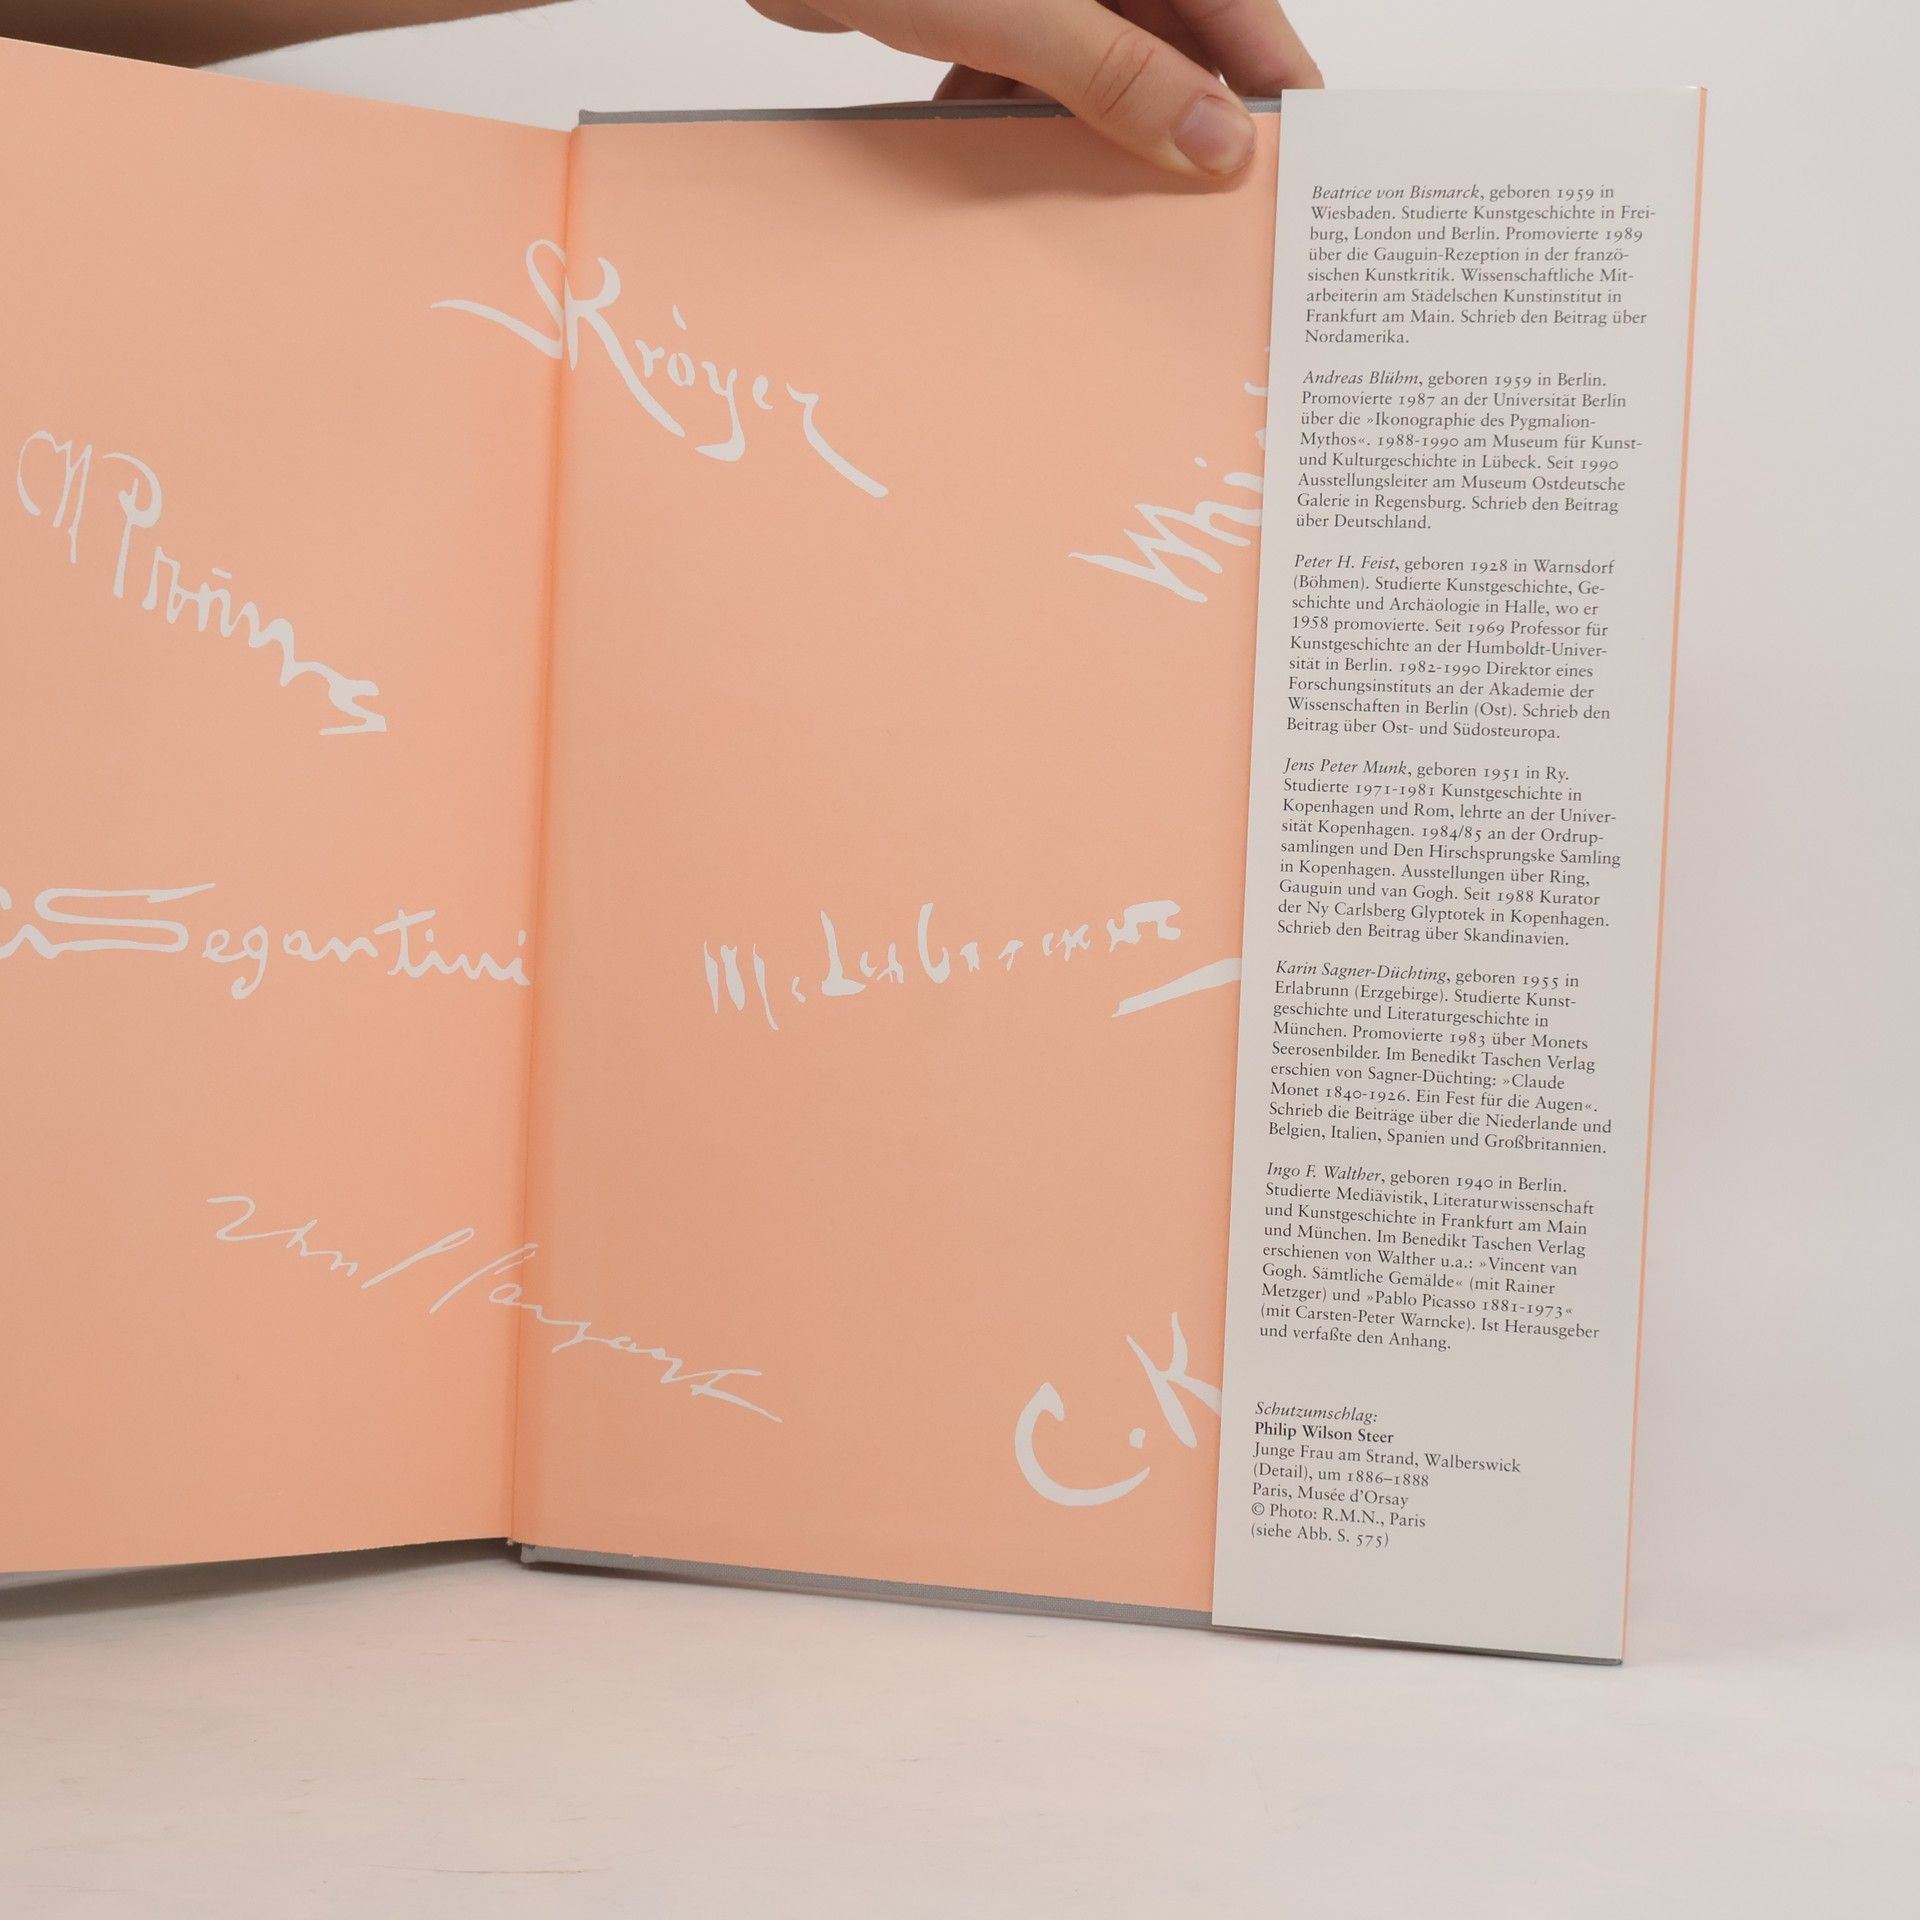 SKröyer
Segantini
C. K
Beatrice von Bismarck, geboren 1959 in
Wiesbaden. Studierte Kunstgeschichte in Frei-
burg, London und Berlin. Promovierte 1989
über die Gauguin-Rezeption in der franzö-
sischen Kunstkritik. Wissenschaftliche Mit-
arbeiterin am Städelschen Kunstinstitut in
Frankfurt am Main. Schrieb den Beitrag über
Nordamerika.
Andreas Blühm, geboren 1959 in Berlin.
Promovierte 1987 an der Universität Berlin
über die »Ikonographie des Pygmalion-
Mythos«. 1988-1990 am Museum für Kunst-
und Kulturgeschichte in Lübeck. Seit 1990
Ausstellungsleiter am Museum Ostdeutsche
Galerie in Regensburg. Schrieb den Beitrag
über Deutschland.
Peter H. Feist, geboren 1928 in Warnsdorf
(Böhmen). Studierte Kunstgeschichte, Ge-
schichte und Archäologie in Halle, wo er
1958 promovierte. Seit 1969 Professor für
Kunstgeschichte an der Humboldt-Univer-
sität in Berlin. 1982-1990 Direktor eines
Forschungsinstituts an der Akademie der
Wissenschaften in Berlin (Ost). Schrieb den
Beitrag über Ost- und Südosteuropa.
Jens Peter Munk, geboren 1951 in Ry.
Studierte 1971-1981 Kunstgeschichte in
Kopenhagen und Rom, lehrte an der Univer-
sität Kopenhagen. 1984/85 an der Ordrup-
samlingen und Den Hirschsprungske Samling
in Kopenhagen. Ausstellungen über Ring,
Gauguin und van Gogh. Seit 1988 Kurator
der Ny Carlsberg Glyptotek in Kopenhagen.
Schrieb den Beitrag über Skandinavien.
Karin Sagner-Düchting, geboren 1955 in
Erlabrunn (Erzgebirge). Studierte Kunst-
geschichte und Literaturgeschichte in
München. Promovierte 1983 über Monets
Seerosenbilder. Im Benedikt Taschen Verlag
erschien von Sagner-Düchting: »Claude
Monet 1840-1926. Ein Fest für die Augen«.
Schrieb die Beiträge über die Niederlande und
Belgien, Italien, Spanien und Großbritannien.
Ingo F. Walther, geboren 1940 in Berlin.
Studierte Mediävistik, Literaturwissenschaft
und Kunstgeschichte in Frankfurt am Main
und München. Im Benedikt Taschen Verlag
erschienen von Walther u.a.: »Vincent van
Gogh. Sämtliche Gemälde« (mit Rainer
Metzger) und »Pablo Picasso 1881-1973«
(mit Carsten-Peter Warncke). Ist Herausgeber
und verfaßte den Anhang.
Schutzumschlag:
Philip Wilson Steer
Junge Frau am Strand, Walberswick
(Detail), um 1886–1888
Paris, Musée d'Orsay
© Photo: R.M.N., Paris
(siehe Abb. S. 575)